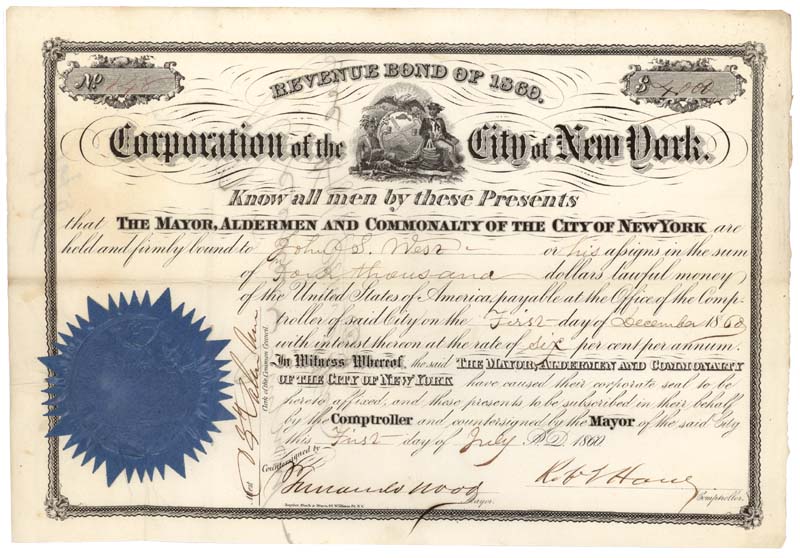 REVENUE BOND OF 1860.
No
$ 4,000
Corporation of the City of New York.
Know all men by these Presents
that THE MAYOR, ALDERMEN AND COMMONALTY OF THE CITY OF NEW YORK are
held and firmly bound to John S. West or his assigns in the sum
of Four thousand dollars lawful money
of the United States of America, payable at the Office of the Comp-
troller of said City on the First day of December 1860
with interest thereon at the rate of six per cent per annum.
In Witness Whereof, the said THE MAYOR, ALDERMEN AND COMMONALTY
OF THE CITY OF NEW YORK have caused their corporate seal to be
hereto affixed, and these presents to be subscribed in their behalf
by the Comptroller and countersigned by the Mayor of the said City
this First day of July A.D. 1860
Attest
Clerk of the Common Council.
Countersigned by
Fernando Wood
Mayor.
Robt Haws
Comptroller.